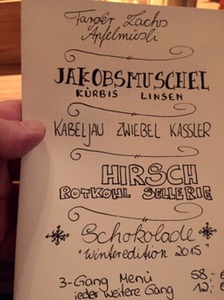 Targêr Lachs
Apfelmüsli
JAKOBSMUSCHEL
KÜRBIS LINSEN
KABELJAU ZWIEBEL KASSLER
HIRSCH
ROTKOHL SELLERIE
Schokolade
"Winteredition 2015"
3-Gang Menü 58,-
jeder weitere Gang 12,-